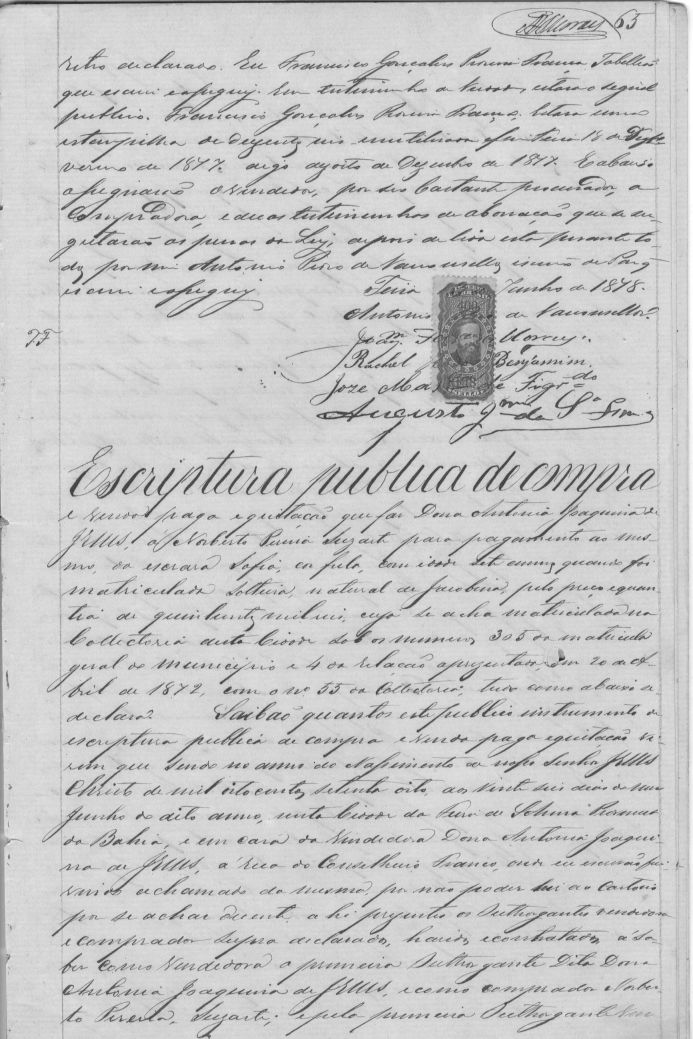 63
retro declarado. Eu Francisco Gonçalves Pereira França Tabelliaõ
que escrevi e assignei. Em testemunho de verdade, estava o signal
publico. Francisco Gonçalves Pereira França, estava uma
estampilha de duzentos reis inutilisada
de 1877. de 1877. E abaixo
assignaraõ o Vendedor, por seo bastante procurador, a
Compradora, e duas testemunhas de abonaçaõ que se su
geitaraõ as penas da Ley, depois de lida esta perante to
dos, por mim Antonio Pedro de Vasconsellos, escrivaõ de Paz
escrevi e assignei
Feira Junho de 1878.
Antonio de Vasconsellos.
Moraes.
Rachel Benjamim.
Joze Ma de Figr.do
Augusto J.mo da S.a Lima
Escriptura publica de compra
e venda paga e quitaçaõ que faz Dona Antonia Joaquina de
JESUS, a Norberto Pereira Suzart para pagamento ao mes
mo, da escrava Sofia, cor fula, com idade sete annos, quando foi
matriculada solteira, natural de Jacobina, pelo preço e quan
tia de quinhentos mil reis, cuja se acha matriculada na
Collectoria desta Cidade sob os numeros 305 da matricula
geral do municipio e 4 da relaçaõ apresentada em 20 de A
bril de 1872, com o nº 55 da Collectoria, tudo como abaixo se
declara. Saibaõ quantos este publico instrumento de
escriptura publica de compra e venda paga e quitaçaõ vi
rem que sendo no anno do Nascimento de nosso Senhor JESUS
Christo de mil oito centos setenta oito, aos vinte seis dias do mez
Junho do dito anno, nesta Cidade da Feira de
da Bahia, e em casa da Vendedora Dona Antonia Joaqui
na de JESUS, á rua do Conselheiro Franco, onde eu escrivaõ
vim a chamado da mesma, por naõ poder hir ao Cartorio
por se achar doente, ahi prezentes os Outhorgantes vendedora
e comprador supra declarados, havidos e contratados, á sa
ber como Vendedora a primeira Outhorgante Dita Dona
Antonia Joaquina de JESUS, e como comprador Norber
to Pereira Suzarte; e pela primeira Outhorgante